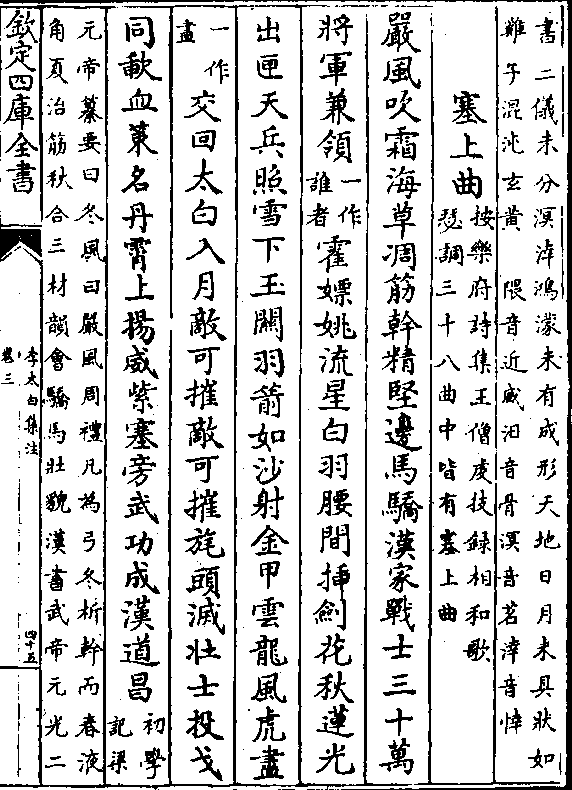 書二儀未分溟涬鴻濛未有成形天地日月未具狀如
雞子混沌玄黄　隈音近威汨音骨溟音茗涬音悻
塞上曲
按樂府詩集王僧虔技録相和歌
瑟調三十八曲中皆有塞上曲
嚴風吹霜海草凋筋幹精堅邊馬驕漢家戰士三十萬
將軍兼領一作誰者霍嫖姚流星白羽腰間挿劍花秋蓮光
出匣天兵照雪下玉關羽箭如沙射金甲雲龍風虎盡
一作盡交回太白入月敵可摧敵可摧旄頭滅壯士投戈
同歃血策名丹霄上揚威紫塞旁武功成漢道昌初學記梁
元帝纂要曰冬風曰嚴風周禮凡為弓冬析幹而春液
角夏治筋秋合三材韻會驕馬壯貌漢書武帝元光二
欽定四庫全書
李太白集注
卷三
四十五